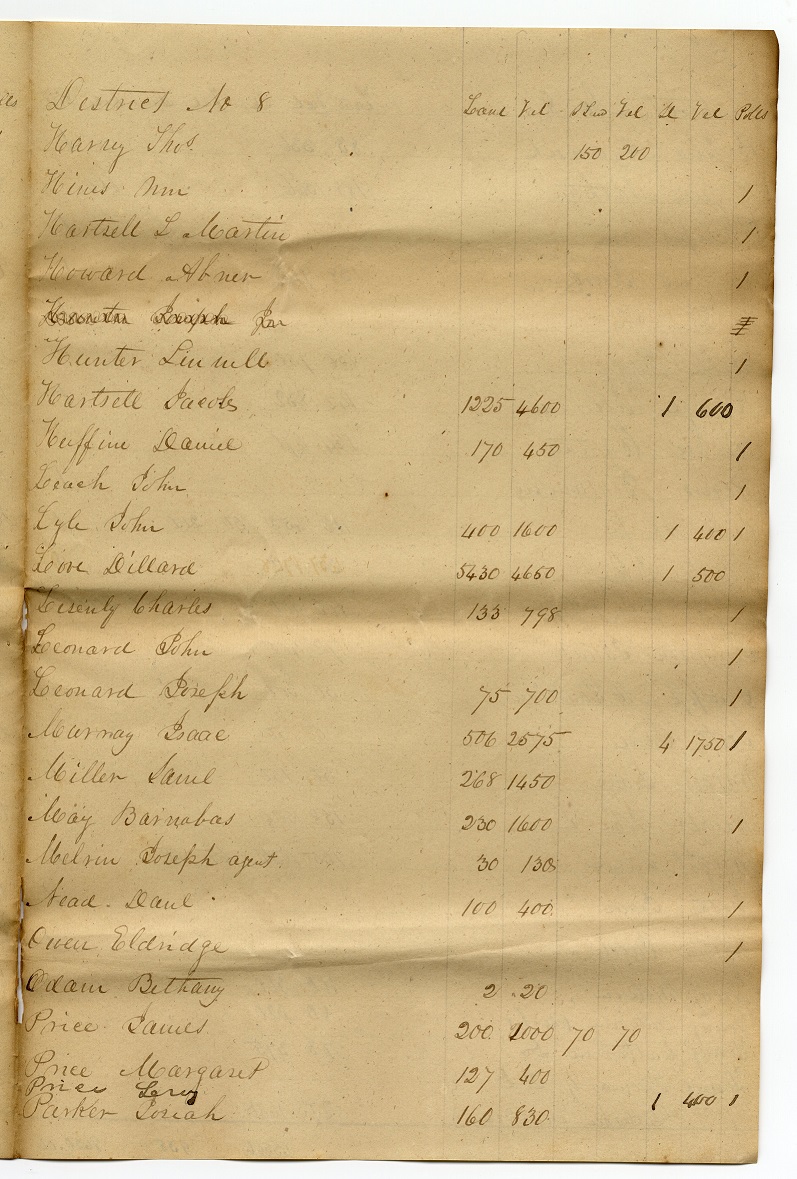 District No 8 Land Val S Lad Val Sl Val Polls
Harvy Thos. 150 200
Hines Wm 1
Hartsell L Martin 1
Howard Abner 1
Joseph Jr
Hunter Linvill 1
Hartsell Jacob 1225 4600 1 600
Huffine Daniel 170 450 1
Leach John 1
Lyle John 400 1600 1 400 1
Love Dillard 5430 4650 1 500
Charles 133 798 1
Leonard John 1
Leonard Joseph 75 700 1
Murray Isaac 506 2575 4 1750 1
Miller Saml 268 1450
May Barnabas 230 1600 1
Melvin Joseph agent 30 130
Nead Danl 100 400 1
Owen Eldridge 1
Odam Bethany 2 20
Price James 200 1000 70 70
Price Margaret 127 400
Price Leroy 1 400 1
Parker Josiah 160 830